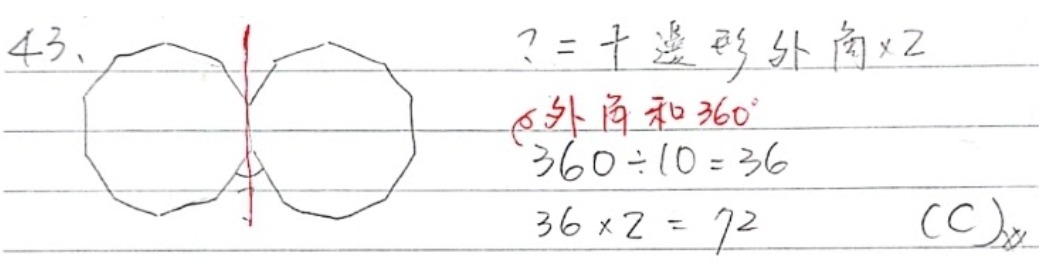 43、
?=十邊形外角×2
外角和360°
360÷10=36
36×2=72 (C)